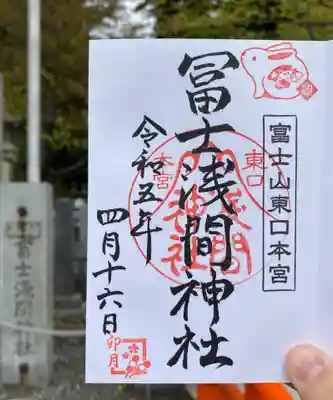 富士山東口本宮
冨士浅間神社
令和五年
四月十六日
東口
本宮
卯月
冨士浅間神社